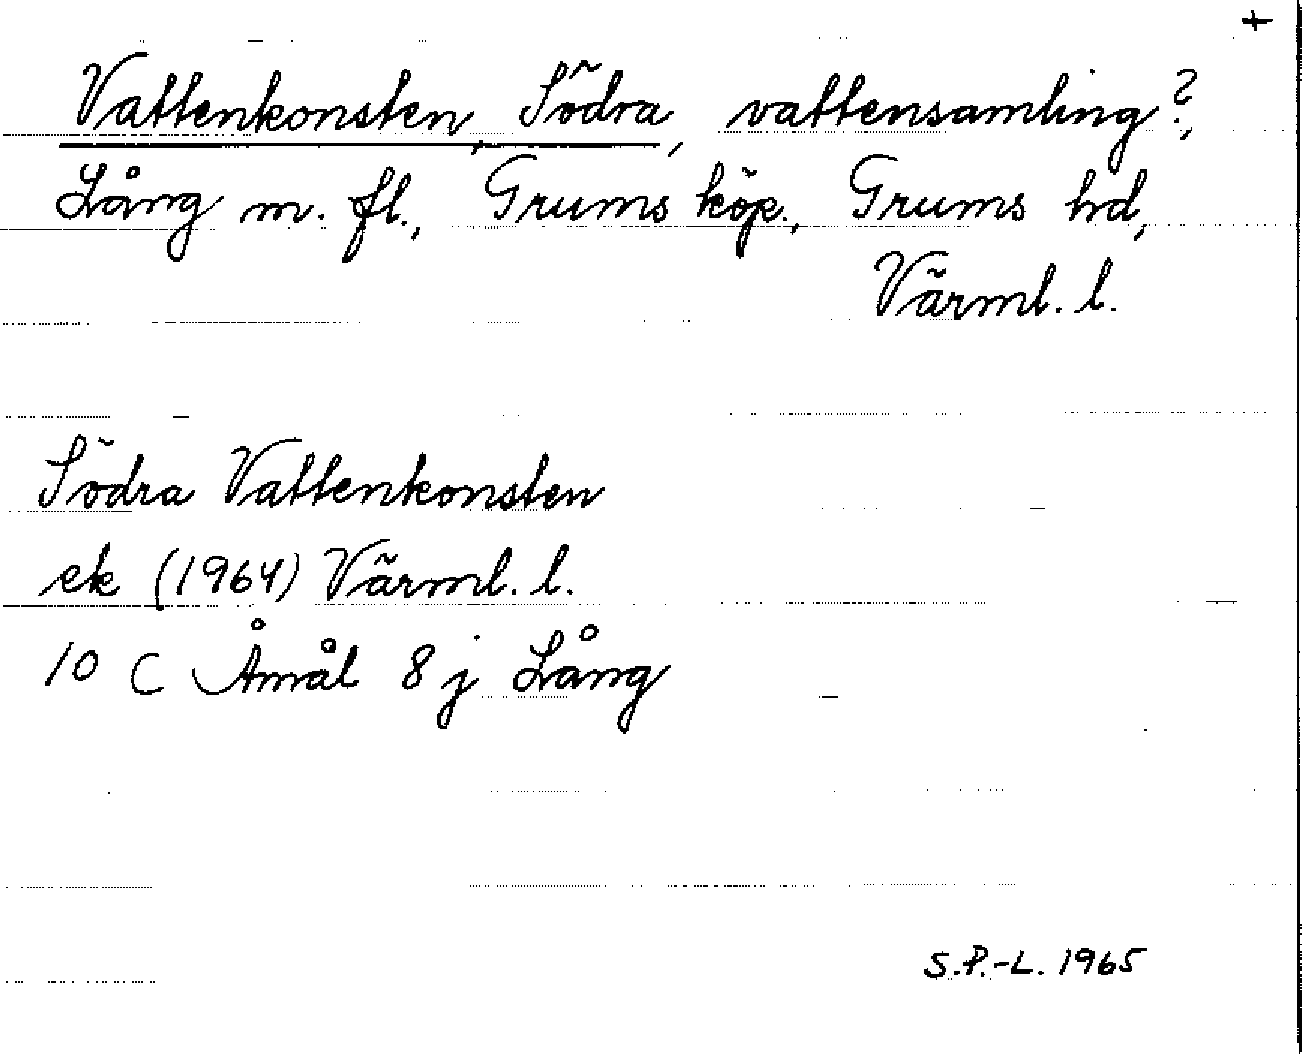 +
Vattenkonsten, Södra, vattensamling?,
Lång m. fl., Grums köp., Grums hd,
Värml. l.
Södra Vattenkonsten
ek (1964) Värml. l.
10 C Åmål 8 j Lång
S.P.-L. 1965